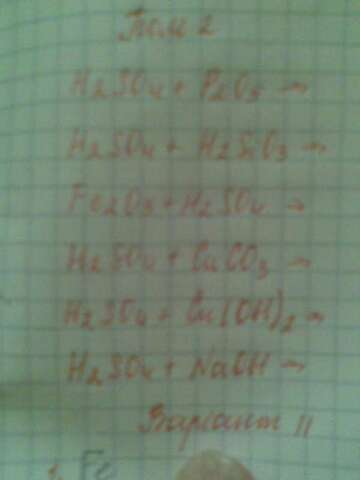 H2SO4 + P2O5 →
H2SO4 + H2SiO3 →
Fe2O3 + H2SO4 →
H2SO4 + CuCO3 →
H2SO4 + Cu(OH)2 →
H2SO4 + NaOH →
Варіант II
1. Fe